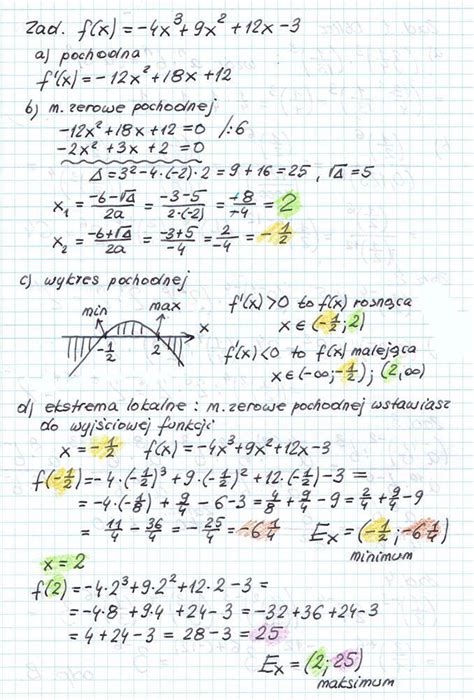 Zad. f(x) = -4x³+9x²+12x-3
a) pochodna
f'(x) = -12x²+18x+12
b) m. zerowe pochodnej
-12x²+18x+12=0 /:6
-2x²+3x+2=0
Δ=3²-4·(-2)·2=9+16=25, √Δ=5
x₁ = (-b-√Δ)/2a = (-3-5)/(2·(-2)) = -8/-4 = 2
x₂ = (-b+√Δ)/2a = (-3+5)/-4 = 2/-4 = -1/2
c) wykres pochodnej
min max
-1/2 2 x
f'(x)>0 to f(x) rosnąca
x∈(-1/2; 2)
f'(x)<0 to f(x) malejąca
x∈(-∞;-1/2); (2,∞)
d) ekstrema lokalne: m. zerowe pochodnej wstawiasz
do wyjściowej funkcji
x = -1/2 f(x) = -4x³+9x²+12x-3
f(-1/2) = -4·(-1/2)³+9·(-1/2)²+12·(-1/2)-3 =
= -4·(-1/8)+9/4-6-3=4/8+9/4-9=2/4+9/4-9
= 11/4 - 36/4 = -25/4 = -6 1/4 Ex = (-1/2; -6 1/4)
minimum
x = 2
f(2) = -4·2³+9·2²+12·2-3 =
= -4·8 + 9·4 + 24-3 = -32+36+24-3
= 4+24-3 = 28-3 = 25
Ex = (2; 25)
maksimum